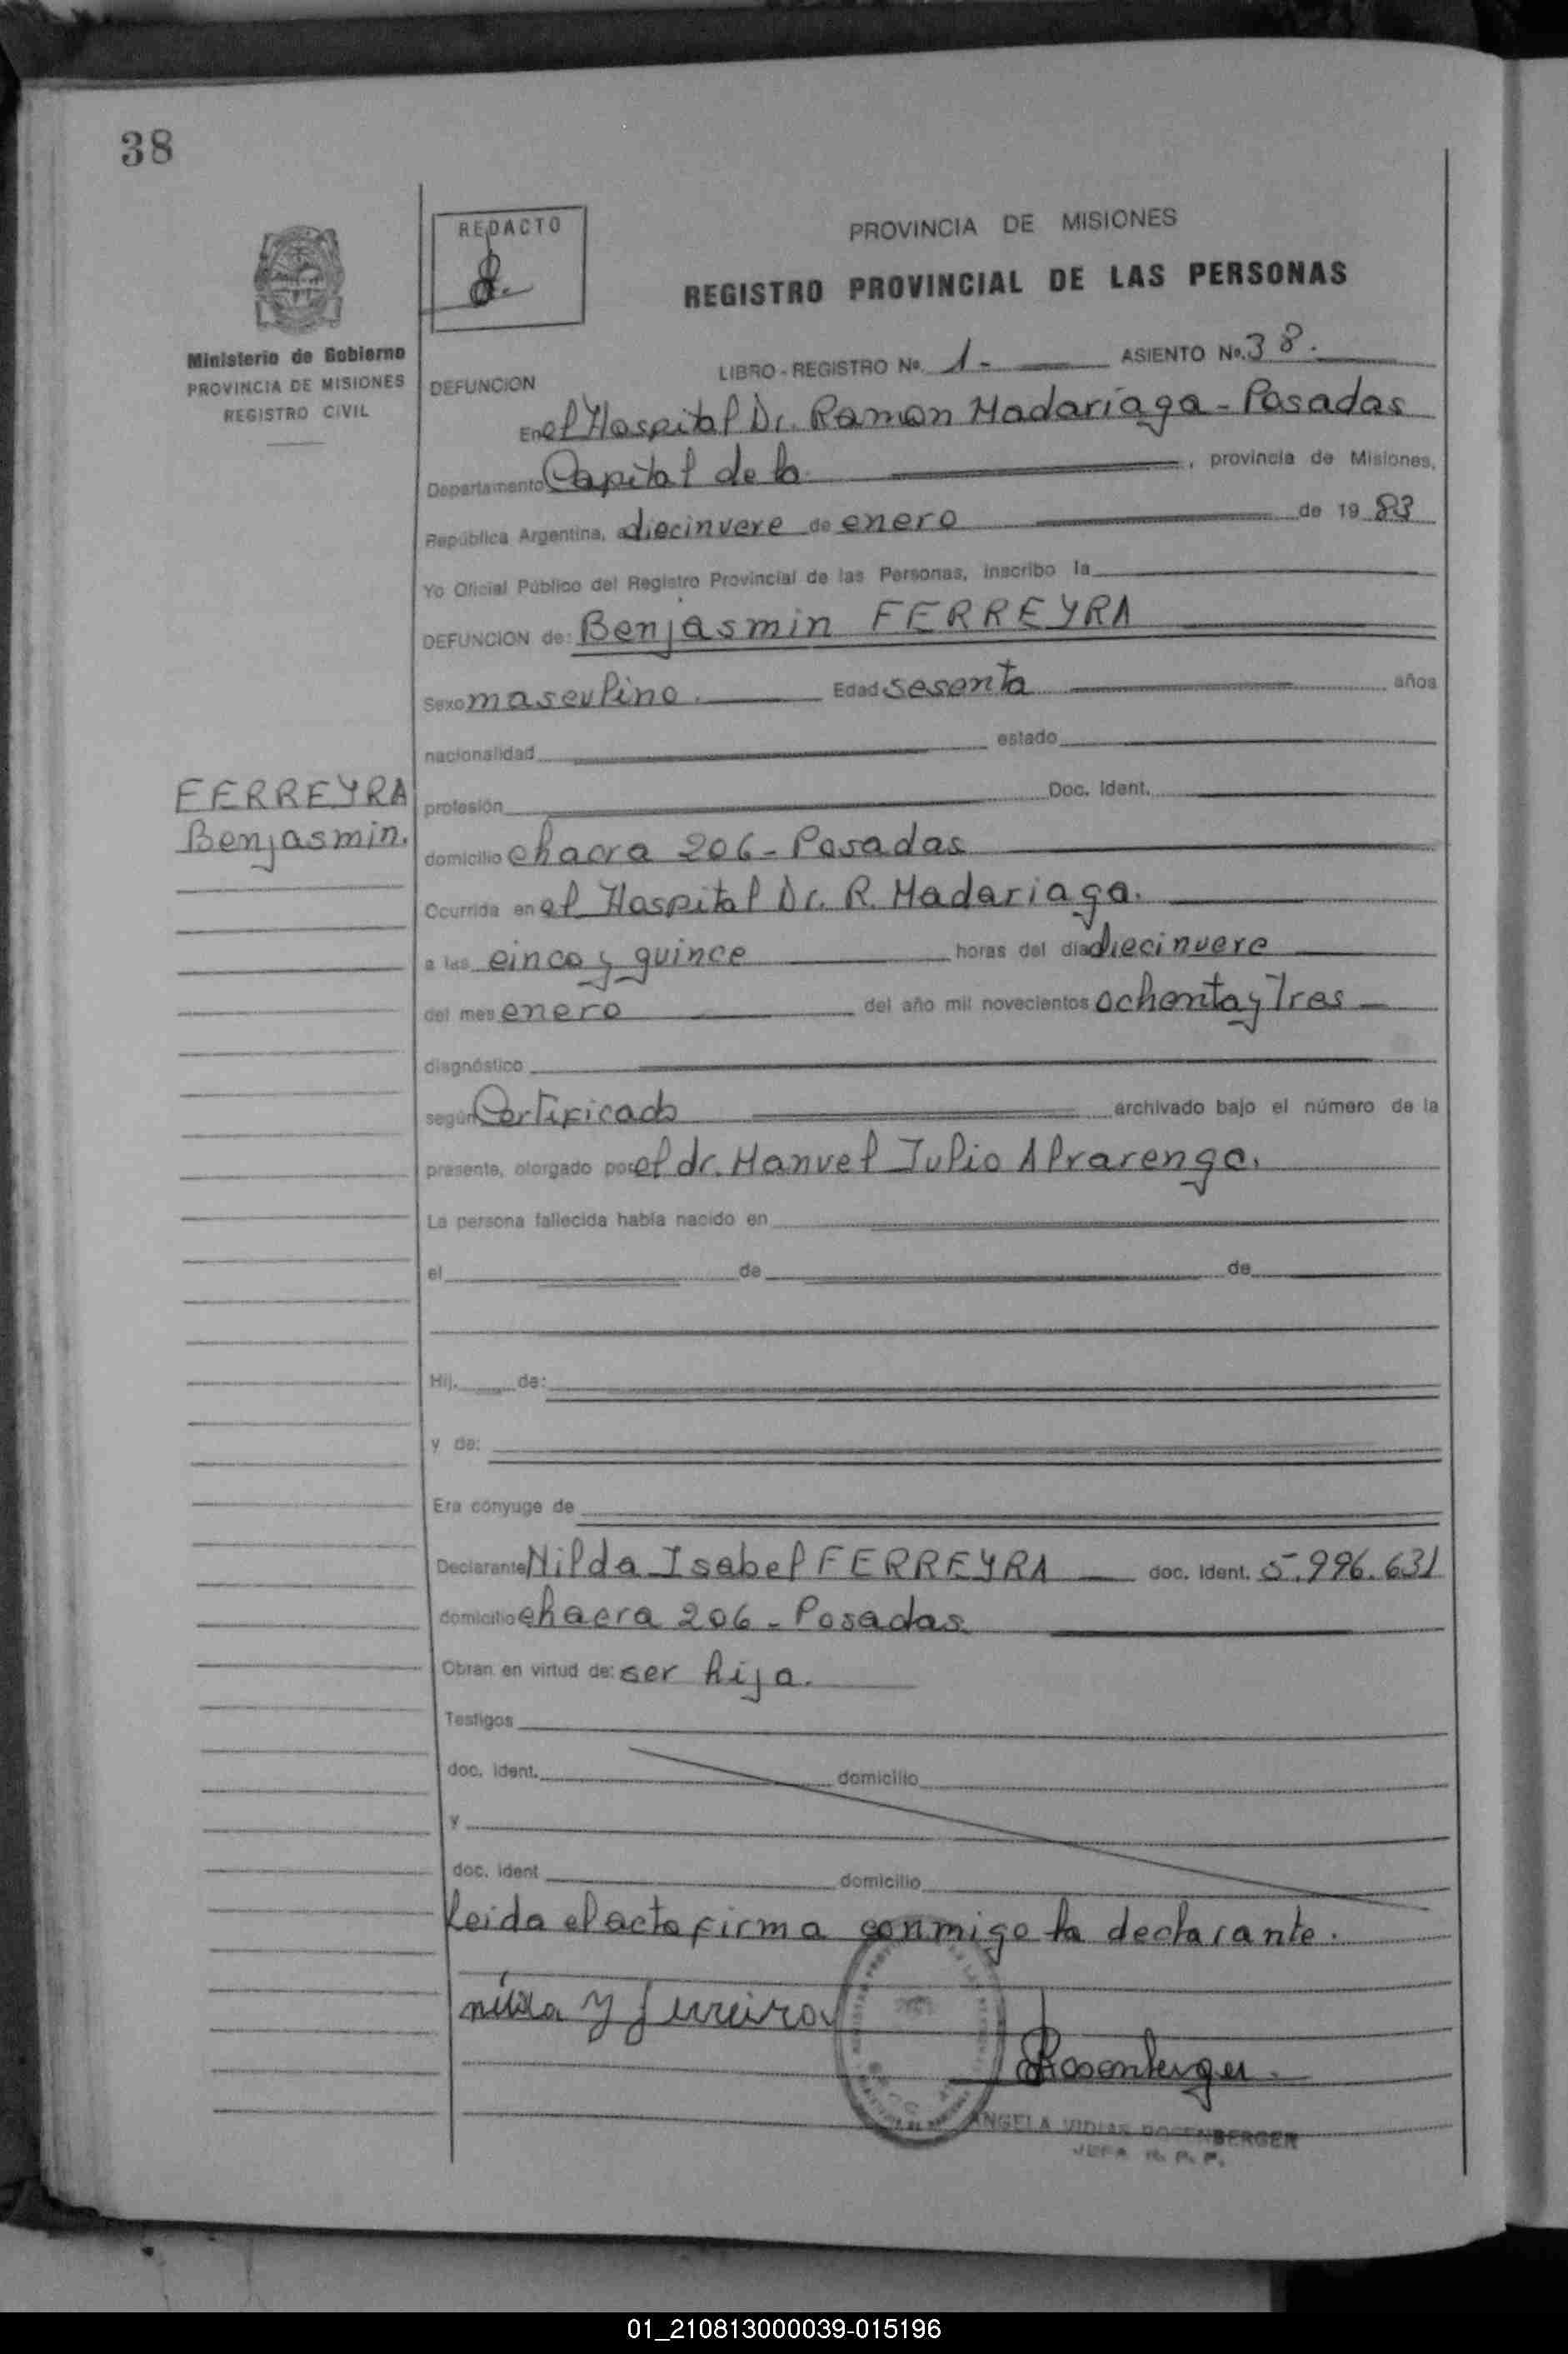 38
REDACTO
PROVINCIA DE MISIONES
REGISTRO PROVINCIAL DE LAS PERSONAS
Ministerio de Gobierno
PROVINCIA DE MISIONES
REGISTRO CIVIL
LIBRO - REGISTRO No. 1.- ASIENTO No. 38.
DEFUNCION
En el Hospital Dr. Ramon Madariaga - Posadas
Departamento Capital de la , provincia de Misiones,
República Argentina, a diecinueve de enero de 1983
Yo Oficial Público del Registro Provincial de las Personas, inscribo la
DEFUNCION de: Benjasmin FERREYRA
Sexo masculino. Edad sesenta años
nacionalidad estado
FERREYRA
Benjasmin.
profesión Doc. Ident.
domicilio chacra 206 - Posadas
Ocurrida en el Hospital Dr. R. Madariaga.
a las cinco y quince horas del día diecinueve
del mes enero del año mil novecientos ochenta y Tres
diagnóstico
según Certificado archivado bajo el número de la
presente, otorgado por el dr. Manuel Julio Alvarenga.
La persona fallecida había nacido en
el de de
Hij. de:
y de:
Era cónyuge de
Declarante Nilda Isabel FERREYRA doc. ident. 5.996.631
domicilio chacra 206 - Posadas
Obran en virtud de: ser hija.
Testigos
doc. ident. domicilio
y
doc. ident domicilio
Leida el acta firma conmigo la declarante.
nilda Y ferreira
Rosenberger
ANGELA VIDIAS ROSENBERGER
JEFA R. P. P.
01_210813000039-015196